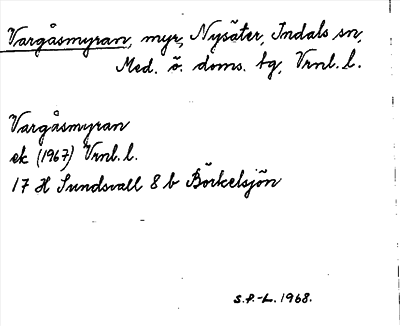 Vargåsmyran, myr, Nysäter, Indals sn,
Med. ö. doms. tg, Vrnl. l.
Vargåsmyran
ek (1967) Vrnl. l.
17 H Sundsvall 8 b Börkelsjön
S.P.-L. 1968.